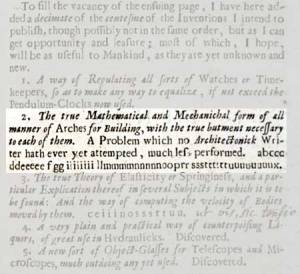 To fill the vacancy of the ensuing page, I have here added
a decimate of the centesme of the Inventions I intend to
publish, though possibly not in the same order, but as I can
get opportunity and leasure; most of which, I hope,
will be as useful to Mankind, as they are yet unknown and
new.
1. A way of Regulating all sorts of Watches or Time-
keepers, so as to make any way to equalize, if not exceed the
Pendulum-Clocks now used.
2. The true Mathematical and Mechanichal form of all
manner of Arches for Building, with the true butment necessary
to each of them. A Problem which no Architectonick Wri-
ter hath ever yet attempted, much less performed. abccc
ddeeeee f gg iiiiiiii llmmmmnnnnnooprr sssttttttuuuuuuuux.
3. The true Theory of Elasticity or Springiness, and a par-
ticular Explication thereof in several Subjects in which it is to
be found: And the way of computing the velocity of Bodies
moved by them. ceiiinosssttuu.
4. A very plain and practical way of counterpoising Li-
quors, of great use in Hydraulicks. Discovered.
5. A new sort of Object-Glasses for Telescopes and Mi-
croscopes, much outdoing any yet used. Discovered.